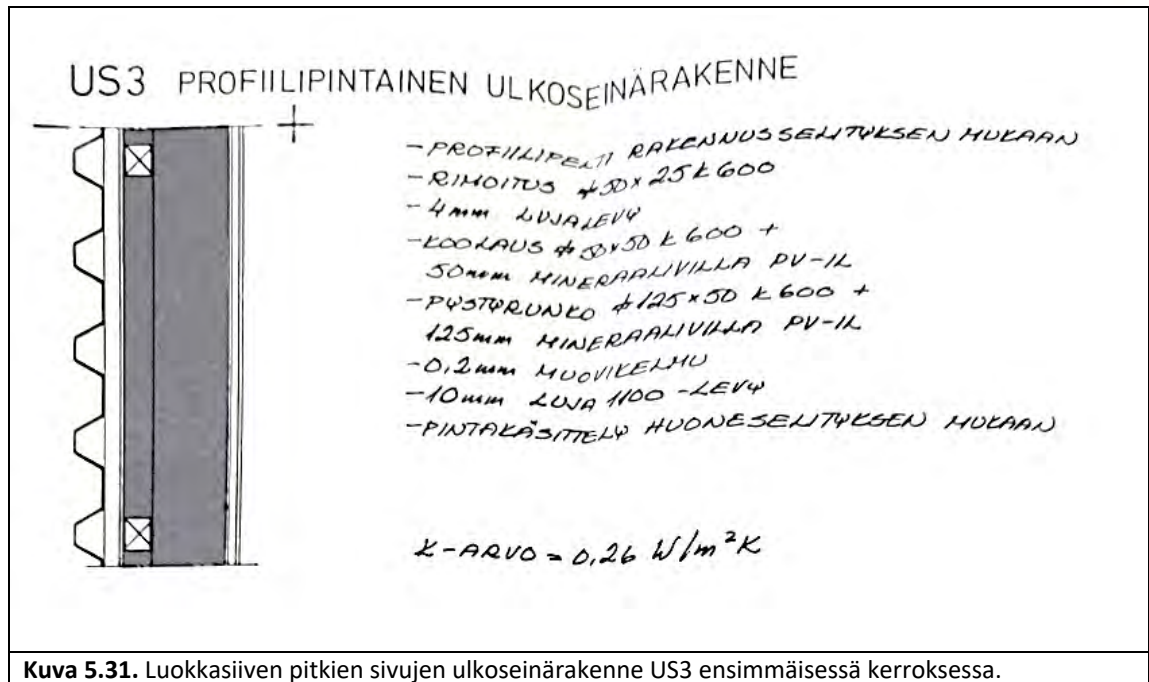 US3 PROFIILIPINTAINEN ULKOSEINÄRAKENNE
-PROFIILIPELTI RAKENNUSSELITYKSEN MUKAAN
-RIMOITUS #50x25 k 600
-4mm LUJALEVY
-KOOLAUS #50x50 k 600 +
50mm MINERAALIVILLA PV-IL
-PYSTYRUNKO #125x50 k 600 +
125mm MINERAALIVILLA PV-IL
-0,2mm MUOVIKELMU
-10mm LUJA 1100 -LEVY
-PINTAKÄSITTELY HUONESELITYKSEN MUKAAN
K-ARVO = 0,26 W/m²K
Kuva 5.31. Luokkasiiven pitkien sivujen ulkoseinärakenne US3 ensimmäisessä kerroksessa.